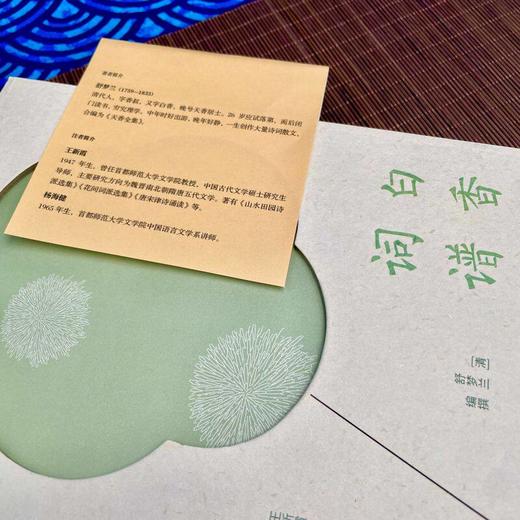 著者简介
舒梦兰（1759—1835）
清代人，字香叔，又字白香，晚号天香居士。26 岁应试落第，而后闭
门读书，穷究理学，中年时好出游，晚年好静，一生创作大量诗词散文，
合编为《天香全集》。
注者简介
王新霞
1947 年生，曾任首都师范大学文学院教授，中国古代文学硕士研究生
导师，主要研究方向为魏晋南北朝隋唐五代文学。著有《山水田园诗
派选集》《花间词派选集》《唐宋律诗诵读》等。
杨海健
1965年生，首都师范大学文学院中国语言文学系讲师。
白香
词谱
［清］
舒梦兰
编撰